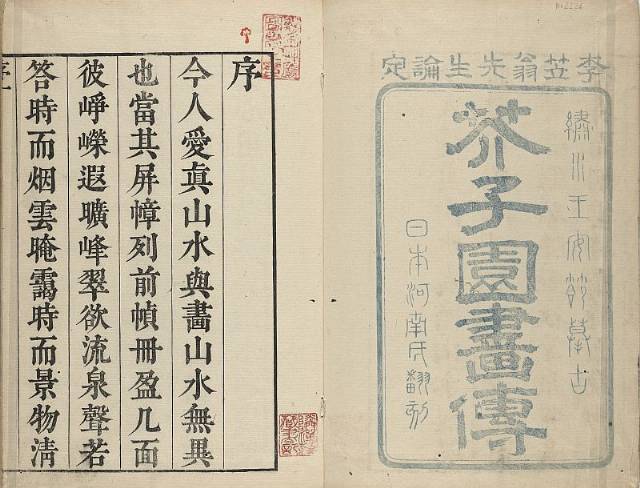 李笠翁先生論定
繡水王安節摹古
芥子園畫傳
日本河南氏翻刻
序
今人愛眞山水與畫山水無異
也當其屏幛列前幀冊盈几面
彼崢嶸遐曠峰翠欲流泉聲若
答時而烟雲晻靄時而景物淸